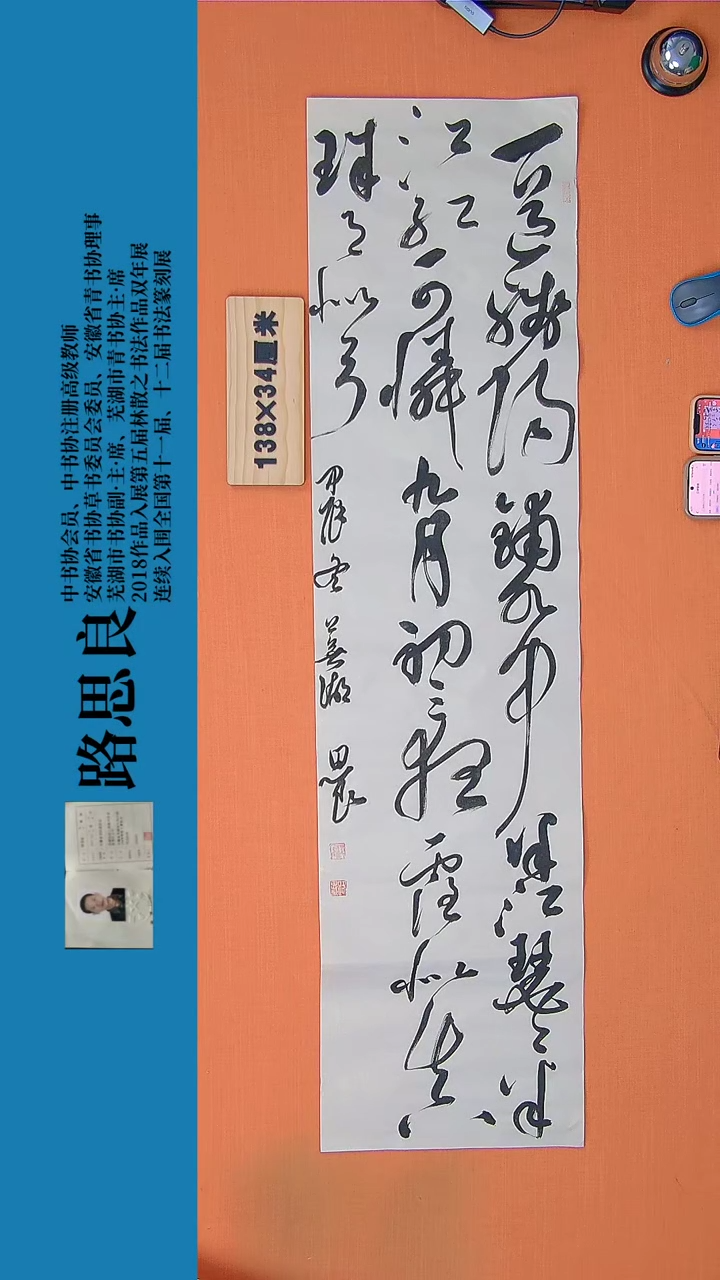 路思良
中书协会员、中书协注册高级教师
安徽省书协草书委员会委员、安徽省青书协理事
芜湖市书协副·主·席、芜湖市青书协主·席
2018作品入展第五届林散之书法作品双年展
连续入围全国第十一届、十二届书法篆刻展
138×34厘米
一道殘陽鋪水中半江瑟〻半
江紅可憐九月初三夜露似真
珠月似弓 甲辰冬 蕪湖 思良